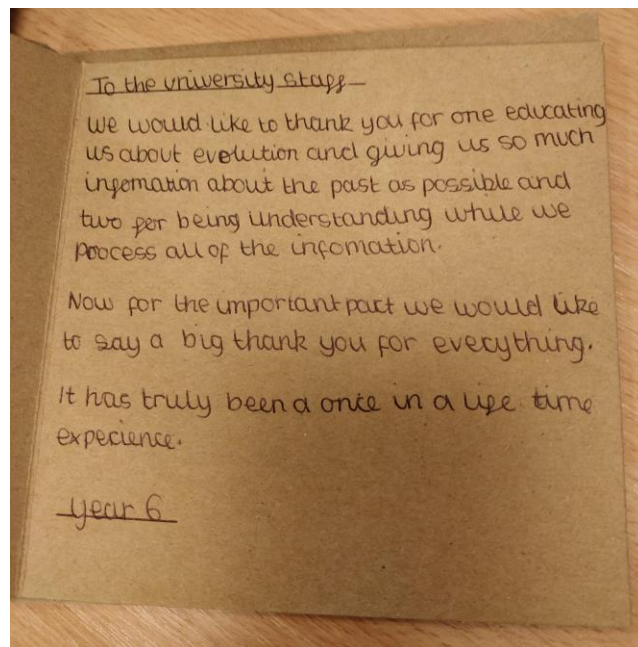 To the university staff
We would like to thank you for one educating
us about evolution and giving us so much
infomation about the past as possible and
two for being understanding while we
poocess all of the infomation.
Now for the important part we would like
to say a big thank you for everything.
It has truly been a once in a life time
experience.
year 6